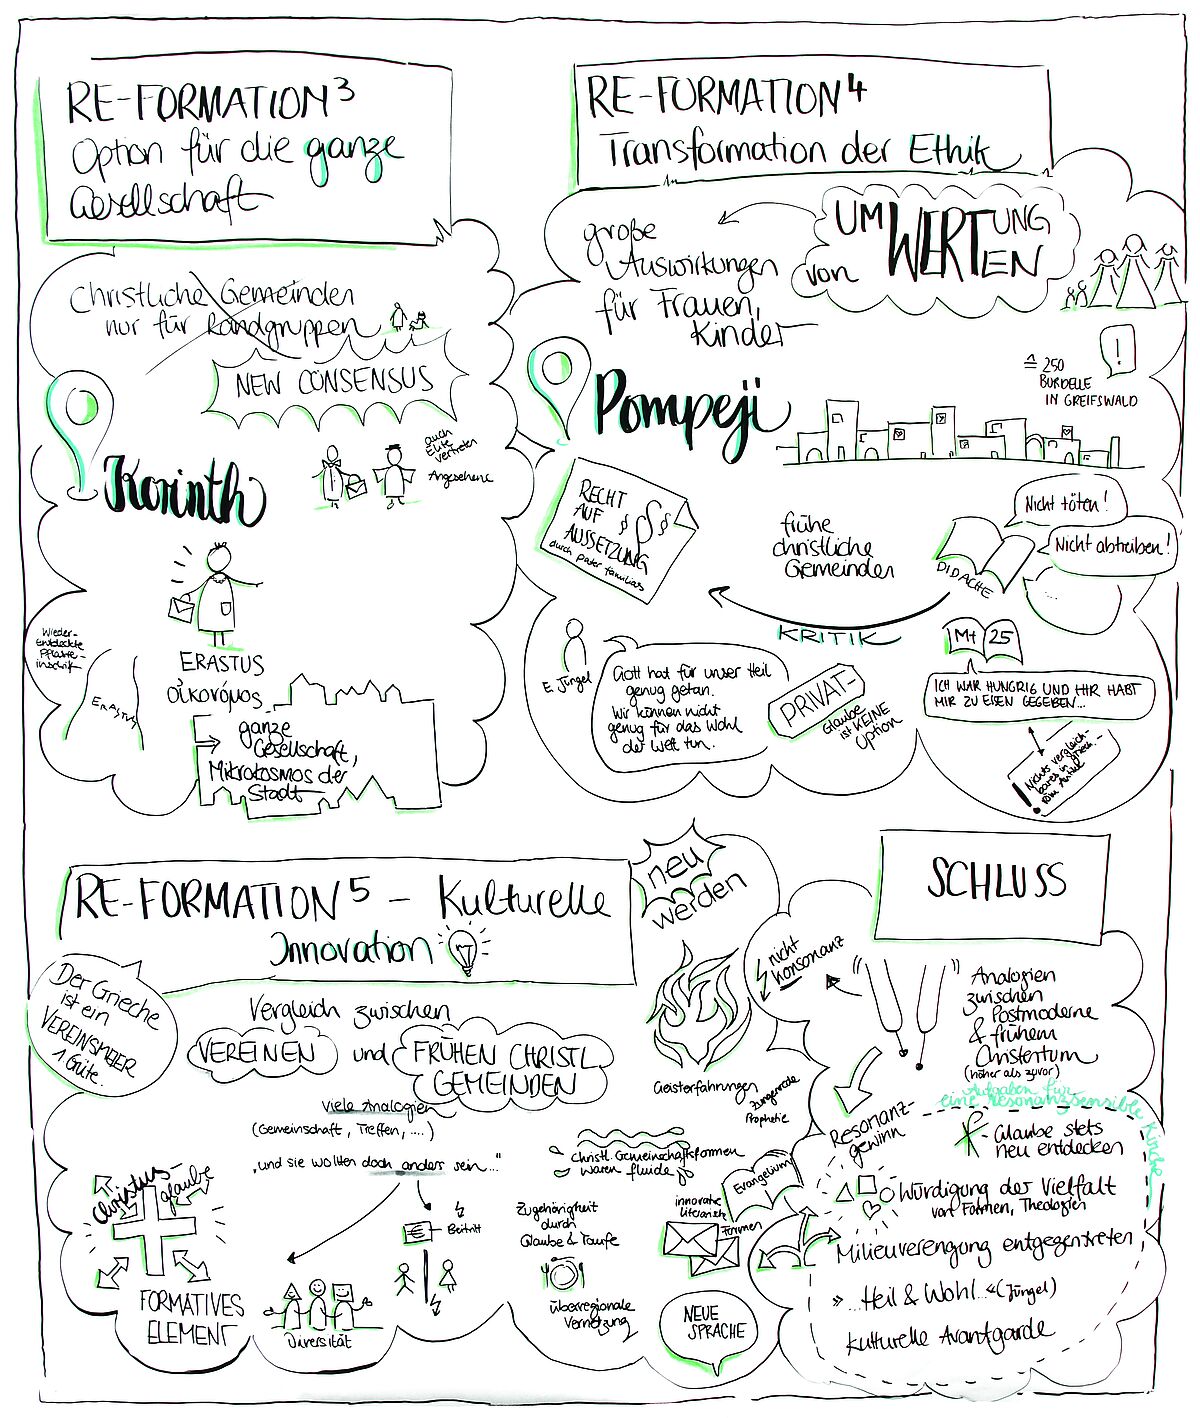 RE-FORMATION³
Option für die ganze
Gesellschaft
Christliche Gemeinden
nur für Randgruppen
NEW CONSENSUS
Korinth
auch
Elite
vertreten
Angesehene
Wieder-
entdeckte
Pflaster-
inschrift
ERASTUS
ERASTUS
οἰκονόμος
ganze
Gesellschaft,
Mikrokosmos der
Stadt
RE-FORMATION⁴
Transformation der Ethik
UMWERTUNG
von WERTEN
große
Auswirkungen
für Frauen,
Kinder
Pompeji
!
≙ 250
BORDELLE
IN GREIFSWALD
RECHT
AUF
AUSSETZUNG
durch pater familias
§§§
frühe
christliche
Gemeinden
Nicht töten!
Nicht abtreiben!
...
DIDACHE
KRITIK
Mt 25
ICH WAR HUNGRIG UND IHR HABT
MIR ZU ESSEN GEGEBEN...
Nichts vergleich-
bares in griech.-
röm. Antike
E. Jüngel
Gott hat für unser Heil
genug getan.
Wir können nicht
genug für das Wohl
der Welt tun.
PRIVAT-
Glaube
ist KEINE
Option
RE-FORMATION⁵ - Kulturelle
Innovation
Der Grieche
ist ein
VEREINSMEIER
1. Güte.
Vergleich zwischen
VEREINEN und FRÜHEN CHRISTL.
GEMEINDEN
viele Analogien
(Gemeinschaft, Treffen, ....)
„und sie wollten doch anders sein..."
Christus-
glaube
FORMATIVES
ELEMENT
Diversität
€
Beitritt
neu
werden
Geisterfahrungen
Zungenrede
Prophetie
christl. Gemeinschaftsformen
waren fluide
Zugehörigkeit
durch
Glaube & Taufe
überregionale
Vernetzung
Evangelium
innovative
literarische
Formen
NEUE
SPRACHE
SCHLUSS
nicht
Konsonanz
Analogien
zwischen
Postmoderne
& frühem
Christentum
(näher als zuvor)
Resonanz-
gewinn
Aufgaben für
eine resonanzsensible Kirche
- Glaube stets
neu entdecken
Würdigung der Vielfalt
von Formen, Theologien
Milieuverengung entgegentreten
»...Heil & Wohl...« (Jüngel)
kulturelle Avantgarde